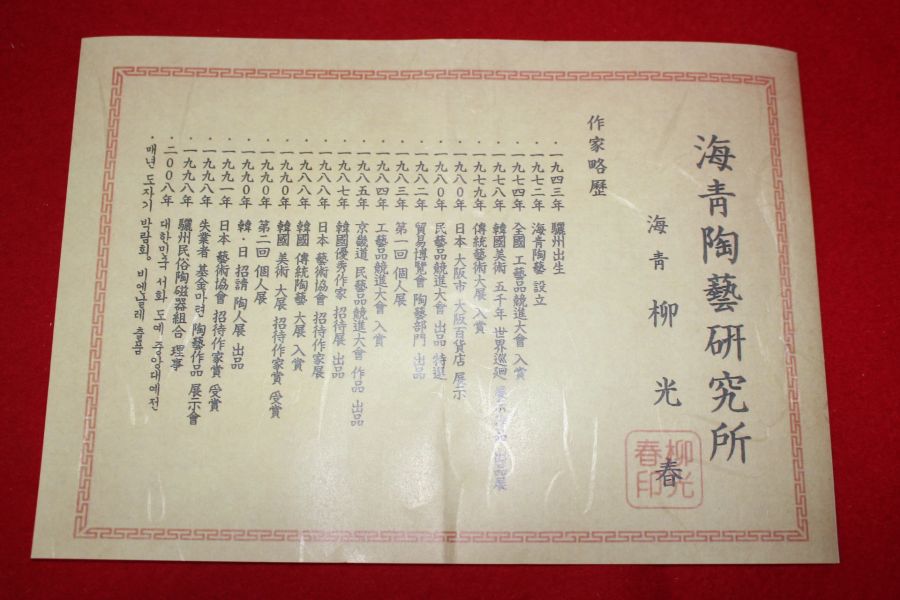 海靑陶藝硏究所
海靑 柳光春
柳光春印
作家略歷
· 一九四三年 驪州出生
· 一九七二年 海靑陶藝 設立
· 一九七四年 全國 工藝品競進大會 入賞
· 一九七八年 韓國美術 五千年 世界巡廻 展示作品 出品展
· 一九七九年 傳統藝術大展 入賞
· 一九八〇年 日本 大阪市 大阪百貨店 展示
· 一九八〇年 民藝品競進大會 出品 特選
· 一九八二年 貿易博覽會 陶藝部門 出品
· 一九八三年 第一回 個人展
· 一九八四年 工藝品競進大會 入賞
· 一九八五年 京畿道 民藝品競進大會 作品 出品
· 一九八七年 韓國優秀作家 招待展 出品
· 一九八八年 日本 藝術協會 招待作家展
· 一九八八年 韓國 傳統陶藝 大展 入賞
· 一九九〇年 韓國 美術 大展 招待作家賞 受賞
· 一九九〇年 第二回 個人展
· 一九九〇年 韓·日 招請 陶人展 出品
· 一九九一年 日本 藝術協會 招待作家賞 受賞
· 一九九八年 失業者 基金마련 陶藝作品 展示會
· 一九九八年 驪州民俗陶磁器組合 理事
· 二〇〇八年 대한민국 서화 도예 중앙대예전
· 매년 도자기 박람회, 비엔날레 출품